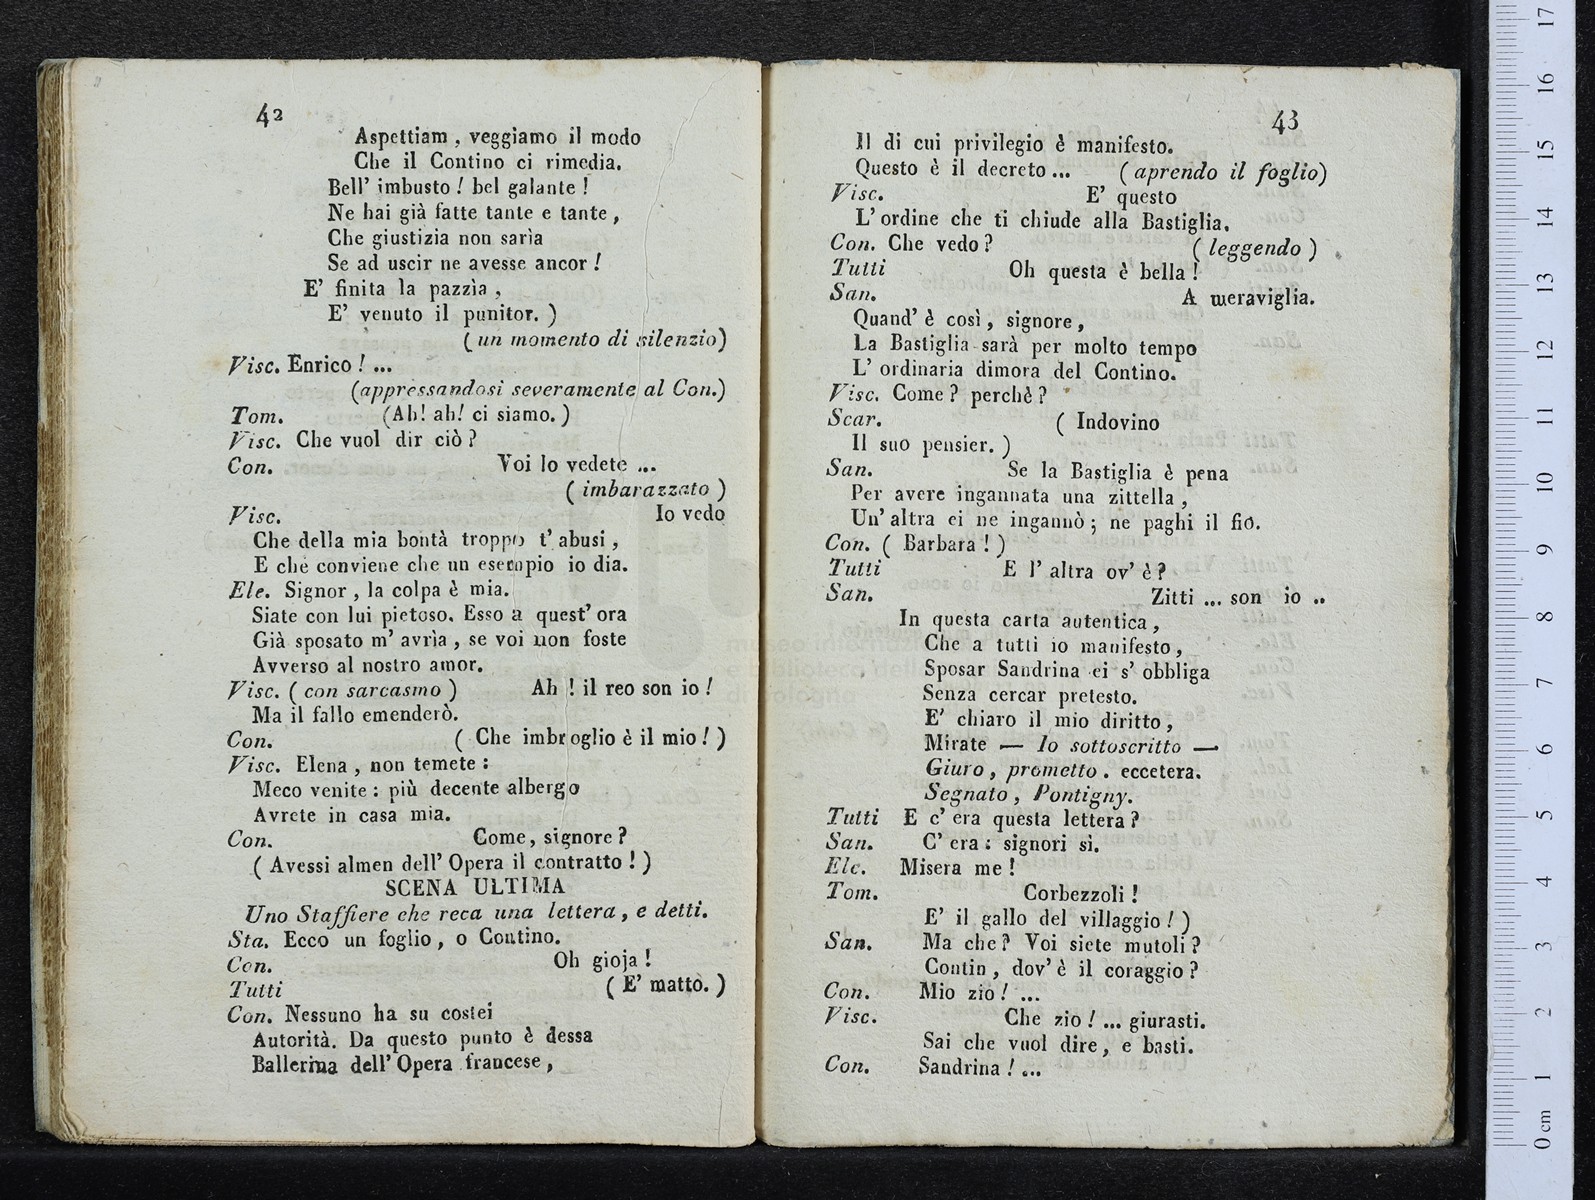 42
Aspettiam , veggiamo il modo
Che il Contino ci rimedia.
Bell' imbusto ! bel galante !
Ne hai già fatte tante e tante ,
Che giustizia non sarìa
Se ad uscir ne avesse ancor !
E' finita la pazzìa ,
E' venuto il punitor. )
( un momento di silenzio)
Visc. Enrico ! ...
(appressandosi severamente al Con.)
Tom. (Ah! ah! ci siamo. )
Visc. Che vuol dir ciò ?
Con. Voi lo vedete ...
( imbarazzato )
Visc. Io vedo
Che della mia bontà troppo t' abusi ,
E che conviene che un esempio io dia.
Ele. Signor , la colpa è mia.
Siate con lui pietoso. Esso a quest' ora
Già sposato m' avrìa , se voi non foste
Avverso al nostro amor.
Visc. ( con sarcasmo ) Ah ! il reo son io !
Ma il fallo emenderò.
Con. ( Che imbroglio è il mio ! )
Visc. Elena , non temete :
Meco venite : più decente albergo
Avrete in casa mia.
Con. Come , signore ?
( Avessi almen dell' Opera il contratto ! )
SCENA ULTIMA
Uno Staffiere che reca una lettera , e detti.
Sta. Ecco un foglio , o Contino.
Con. Oh gioja !
Tutti ( E' matto. )
Con. Nessuno ha su costei
Autorità. Da questo punto è dessa
Ballerina dell' Opera francese ,
43
Il di cui privilegio è manifesto.
Questo è il decreto ... ( aprendo il foglio)
Visc. E' questo
L' ordine che ti chiude alla Bastiglia.
Con. Che vedo ? ( leggendo )
Tutti Oh questa è bella !
San. A meraviglia.
Quand' è così , signore ,
La Bastiglia sarà per molto tempo
L' ordinaria dimora del Contino.
Visc. Come ? perchè ?
Scar. ( Indovino
Il suo pensier. )
San. Se la Bastiglia è pena
Per avere ingannata una zittella ,
Un' altra ei ne ingannò ; ne paghi il fio.
Con. ( Barbara ! )
Tutti E l' altra ov' è ?
San. Zitti ... son io ..
In questa carta autentica ,
Che a tutti io manifesto ,
Sposar Sandrina ei s' obbliga
Senza cercar pretesto.
E' chiaro il mio diritto ,
Mirate — Io sottoscritto —
Giuro , prometto . eccetera.
Segnato , Pontigny.
Tutti E c' era questa lettera ?
San. C' era : signori sì.
Ele. Misera me !
Tom. Corbezzoli !
E' il gallo del villaggio ! )
San. Ma che ? Voi siete mutoli ?
Contin , dov' è il coraggio ?
Con. Mio zio ! ...
Visc. Che zio ! ... giurasti.
Sai che vuol dire , e basti.
Con. Sandrina ! ...
0 cm 1 2 3 4 5 6 7 8 9 10 11 12 13 14 15 16 17